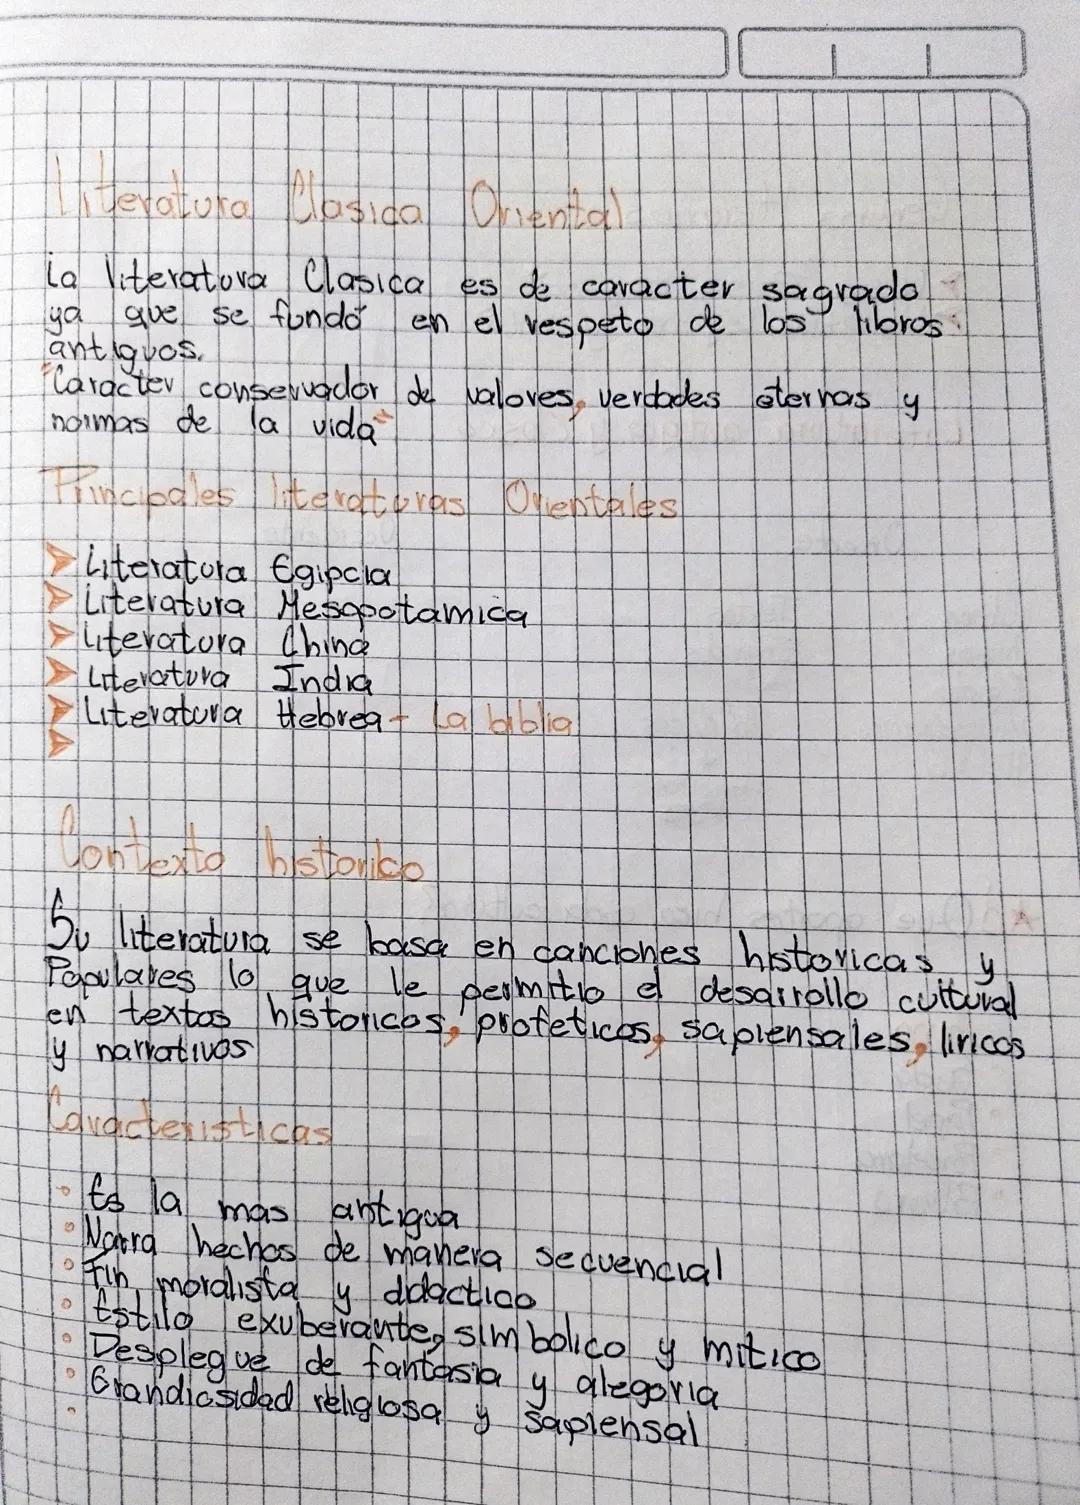 Literatura Clasica Oriental
La literatura Clasica es de caracter sagrado
ya que se fundó en el respeto de los libros
antiguos.
"Caracter conservador de valores, verdades eternas y
normas de la vida"
Principales literaturas Orientales
➤ Literatura Egipcia
➤ Literatura Mesopotamica
➤ Literatura China
➤ Literatura India
➤ Literatura Hebrea - La biblia
➤
Contexto historico
Su literatura se basa en canciones historicas y
Populares lo que le permitio el desarrollo cultural
en textos historicos, profeticos, sapiensales, liricos
y narrativos
Caracteristicas
• Es la mas antigua
• Narra hechos de manera secuencial
• Fin moralista y didactico
• Estilo exuberante, simbolico y mitico
• Desplegue de fantasia y alegoria
• Grandiosidad religiosa y sapiensal
•